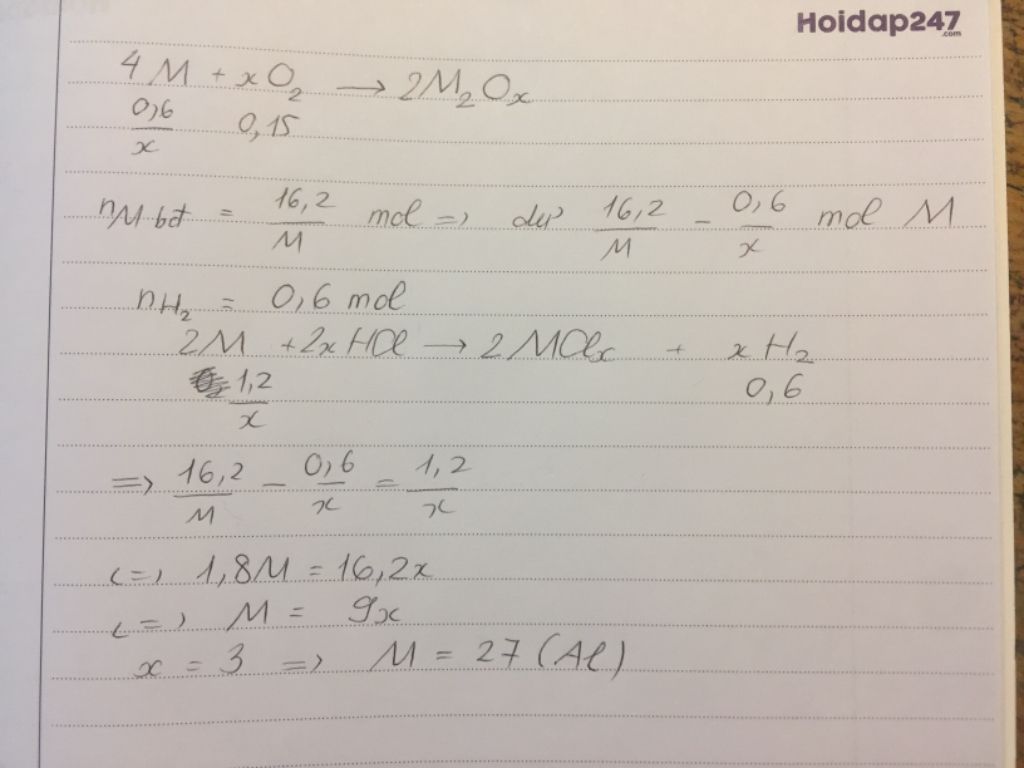 Hoidap247
.com
4M + xO₂ → 2M₂Oₓ
0,6/x 0,15
nM bđ = 16,2/M mol => dư 16,2/M - 0,6/x mol M
nH₂ = 0,6 mol
2M + 2xHCl → 2MClₓ + xH₂
1,2/x 0,6
=> 16,2/M - 0,6/x = 1,2/x
<=> 1,8M = 16,2x
<=> M = 9x
x = 3 => M = 27 (Al)